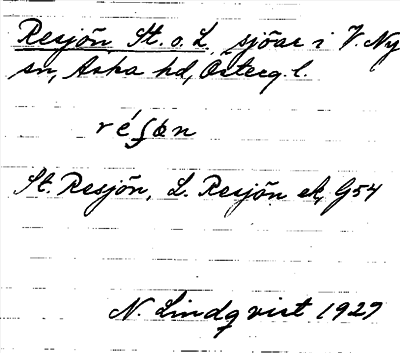 Resjön St. o. L. sjöar i V. Ny
sn, Aska hd, Österg. l.
St. Resjön, L. Resjön ek, G54
N. Lindqvist 1927